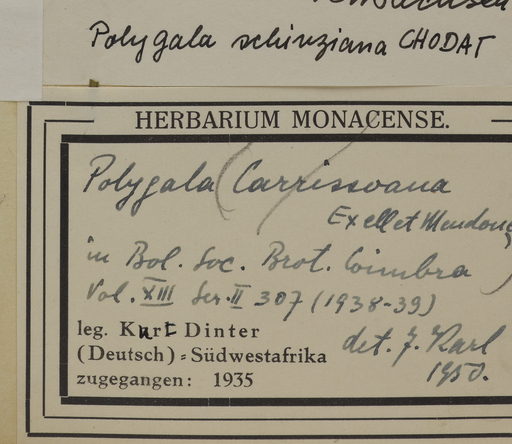 Polygala schinziana CHODAT
HERBARIUM MONACENSE.
Polygala Carrissoana
Exell et Mendonç
in Bol. Soc. Brot. Coimbra
Vol. XIII Ser. II 307 (1938-39)
leg. Kurt Dinter
det. J. Karl
(Deutsch)=Südwestafrika
1950.
zugegangen: 1935